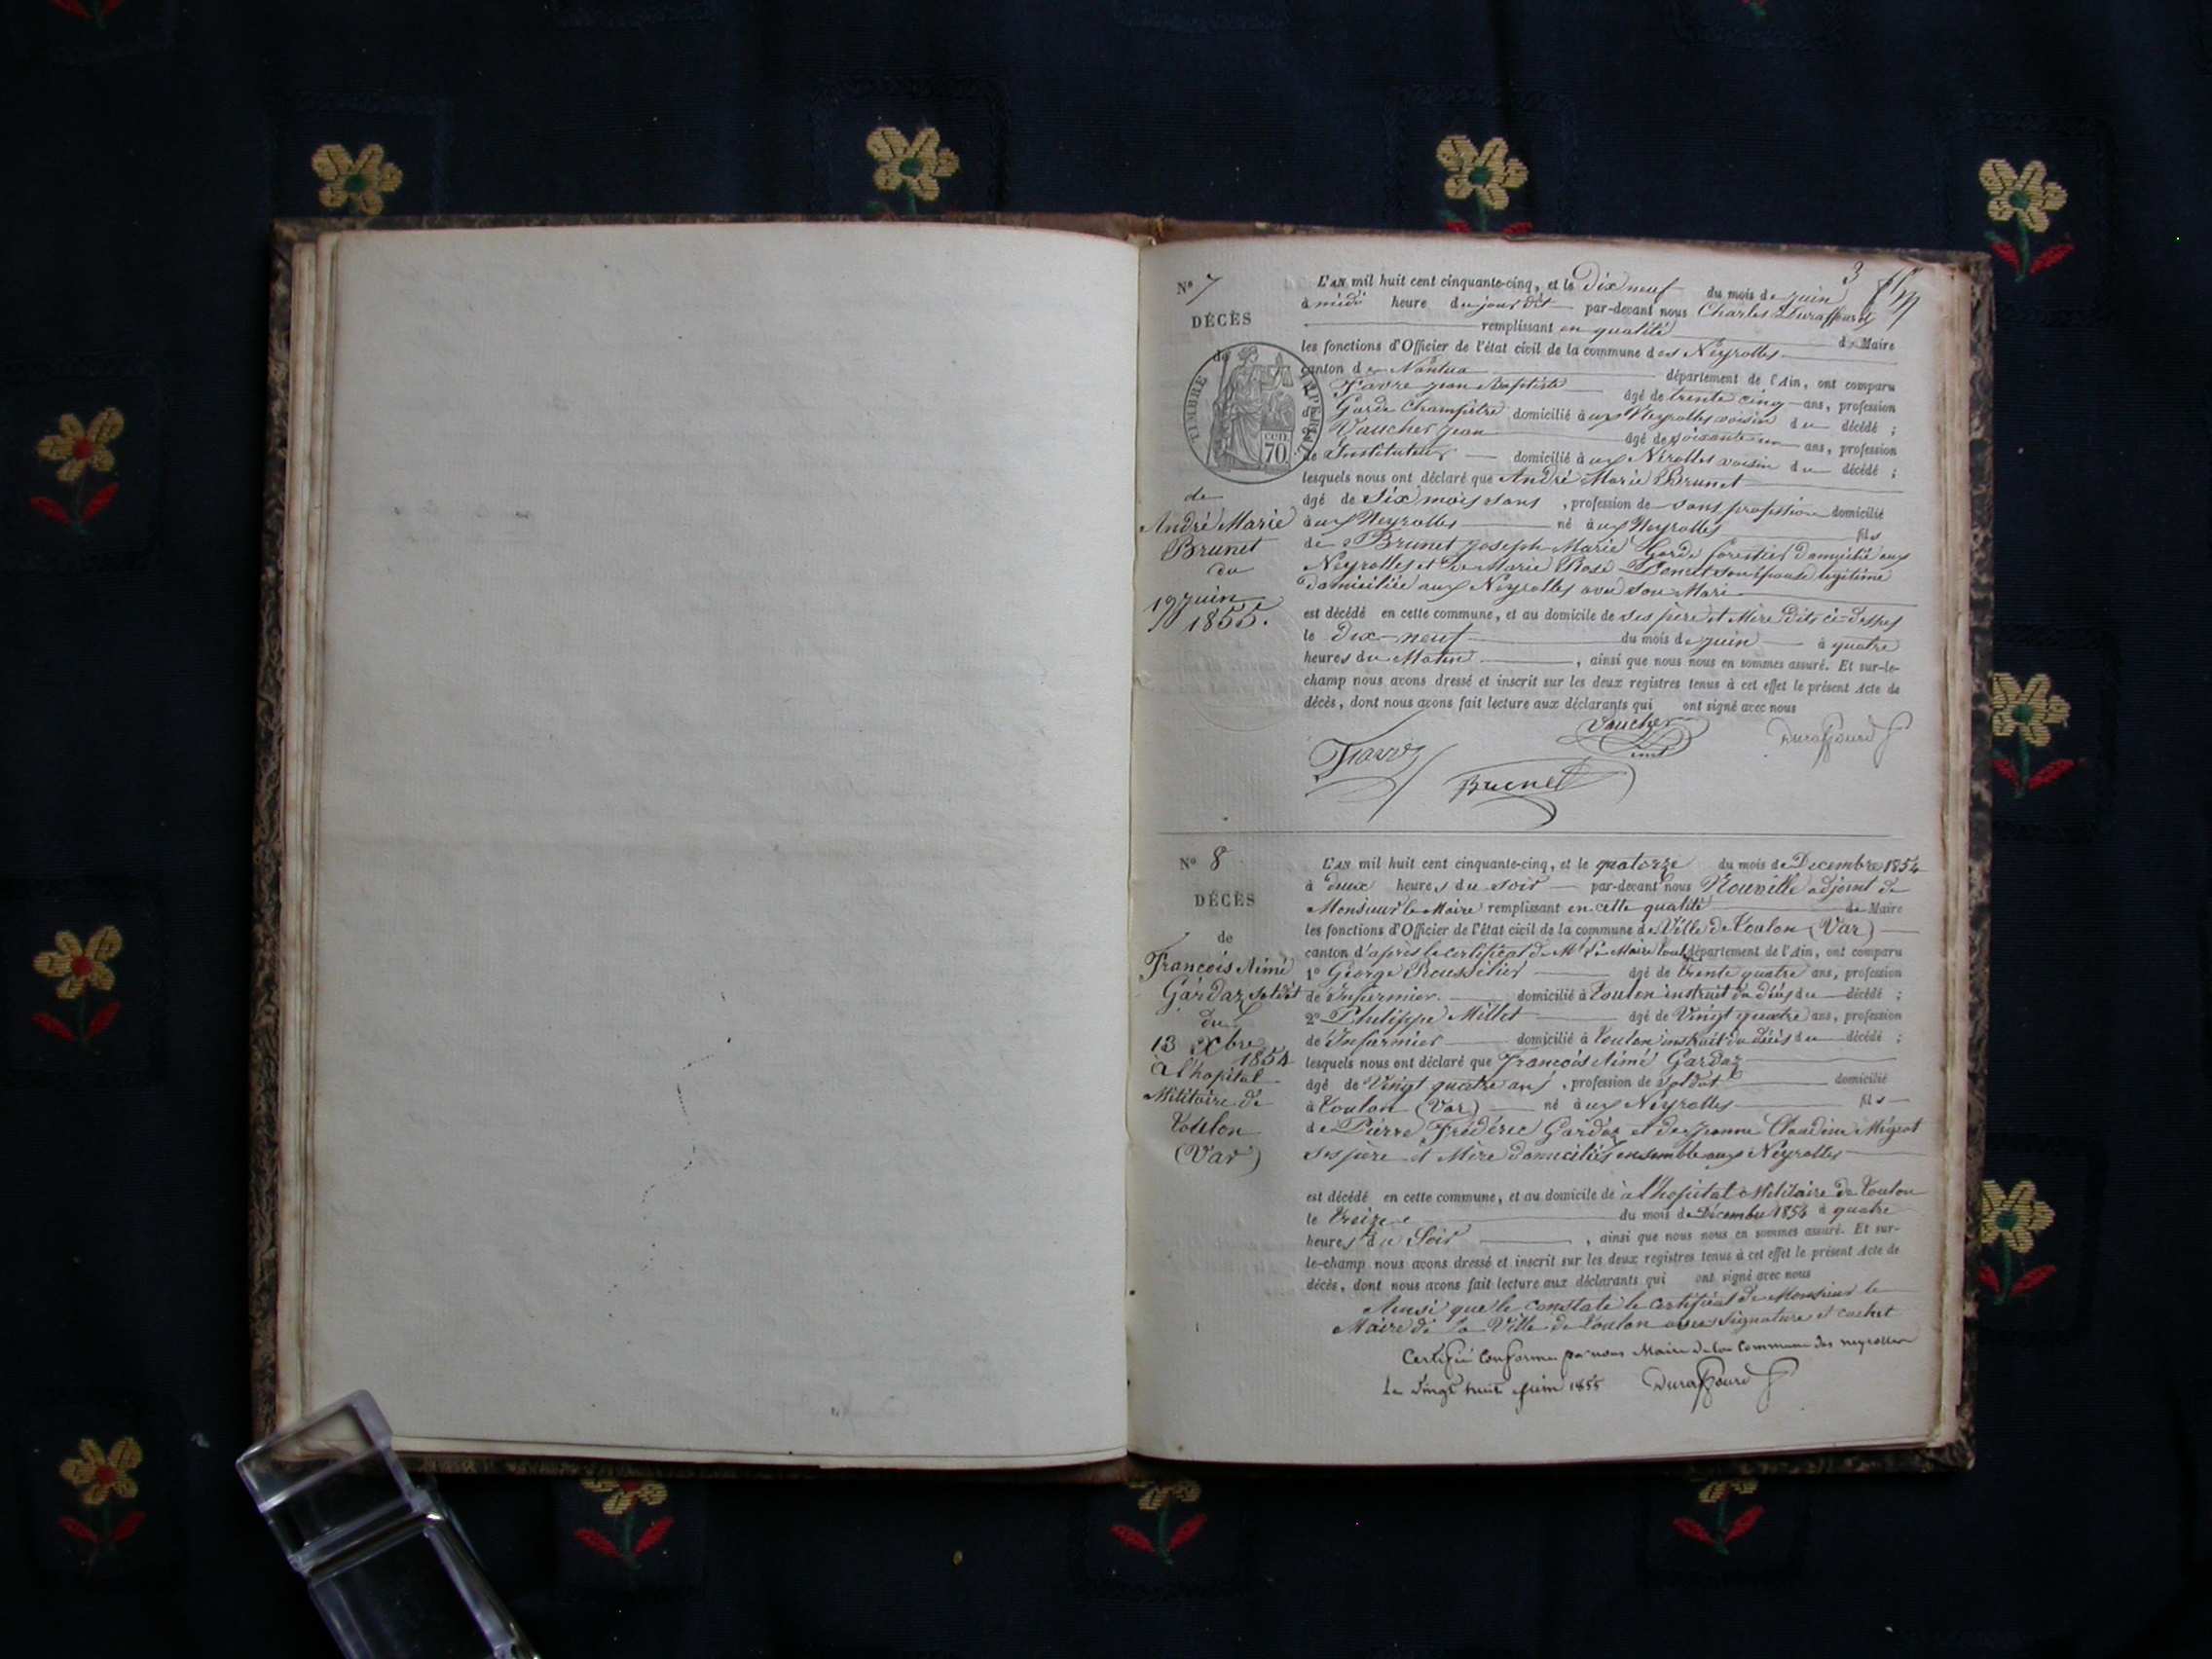 3
Nº 7
DÉCÈS
de
TIMBRE IMPERIAL
CCH.
70
de
André Marie
Brunet
du
19 juin
1855.
L'AN mil huit cent cinquante-cinq, et le Dix neuf du mois de juin
à midi heure du jour dit par-devant nous Charles Duraffourd
remplissant en qualité de Maire
les fonctions d'Officier de l'état civil de la commune des Neyrolles
canton de Nantua département de l'Ain, ont comparu
Favre jean Baptiste âgé de trente cinq ans, profession
de Garde Champêtre domicilié aux Neyrolles voisin du décédé ;
Vaucher jean âgé de soixante un ans, profession
de Instituteur domicilié aux Nérolles voisin du décédé ;
lesquels nous ont déclaré que André Marie Brunet
âgé de Six mois ans, profession de sans profession domicilié
aux Neyrolles né aux Neyrolles fils
de Brunet joseph Marie Garde forestier domicilié aux
Neyrolles et de Marie Rose son épouse légitime
domiciliée aux Neyrolles avec son Mari
est décédé en cette commune, et au domicile de ses père et Mère dits ci-dessus
le Dix-neuf du mois de juin à quatre
heures du Matin, ainsi que nous nous en sommes assuré. Et sur-le-
champ nous avons dressé et inscrit sur les deux registres tenus à cet effet le présent Acte de
décès, dont nous avons fait lecture aux déclarants qui ont signé avec nous
Vaucher
inst
Duraffourd
Favre
Brunet
Nº 8
DÉCÈS
de
François Aimé
Gardaz soldat
du
13 Xbre
1854
à l'hopital
Militaire de
Toulon
(Var)
L'AN mil huit cent cinquante-cinq, et le quatorze du mois de Decembre 1854
à deux heures du soir par-devant nous Nouvelle adjoint de
Monsieur le Maire remplissant en cette qualité de Maire
les fonctions d'Officier de l'état civil de la commune de Ville de Toulon (Var)
canton d'après le certificat de Mr le Maire département de l'Ain, ont comparu
1º George Roussélier âgé de trente quatre ans, profession
de Infirmier domicilié à Toulon instruit du décès du décédé ;
2º Philippe Millet âgé de Vingt quatre ans, profession
de Infirmier domicilié à Toulon instruit du décès du décédé ;
lesquels nous ont déclaré que François Aimé Gardaz
âgé de Vingt quatre ans, profession de soldat domicilié
à Toulon (Var) né aux Neyrolles fils
de Pierre Frédéric Gardaz et de Jeanne Claudine Mégret
ses père et Mère domiciliés ensemble aux Neyrolles
est décédé en cette commune, et au domicile de à l'hopital Militaire de Toulon
le treize du mois de Décembre 1854 à quatre
heures du Soir, ainsi que nous nous en sommes assuré. Et sur-
le-champ nous avons dressé et inscrit sur les deux registres tenus à cet effet le présent Acte de
décès, dont nous avons fait lecture aux déclarants qui ont signé avec nous
Ainsi que le constate le certificat de Monsieur le
Maire de la Ville de Toulon avec signature et cachet
Certifié Conforme par nous Maire de la Commune des neyrolles
Le Vingt huit Juin 1855 Duraffourd